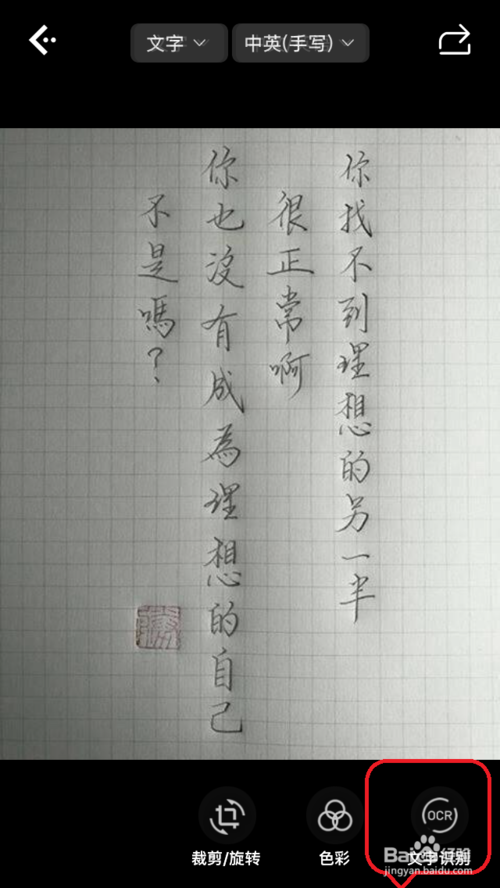 文字
中英(手写)
你找不到理想的另一半
很正常啊
你也沒有成為理想的自己
不是嗎？
裁剪/旋转
色彩
OCR
文字识别
Baidu 经验
jingyan.baidu.com